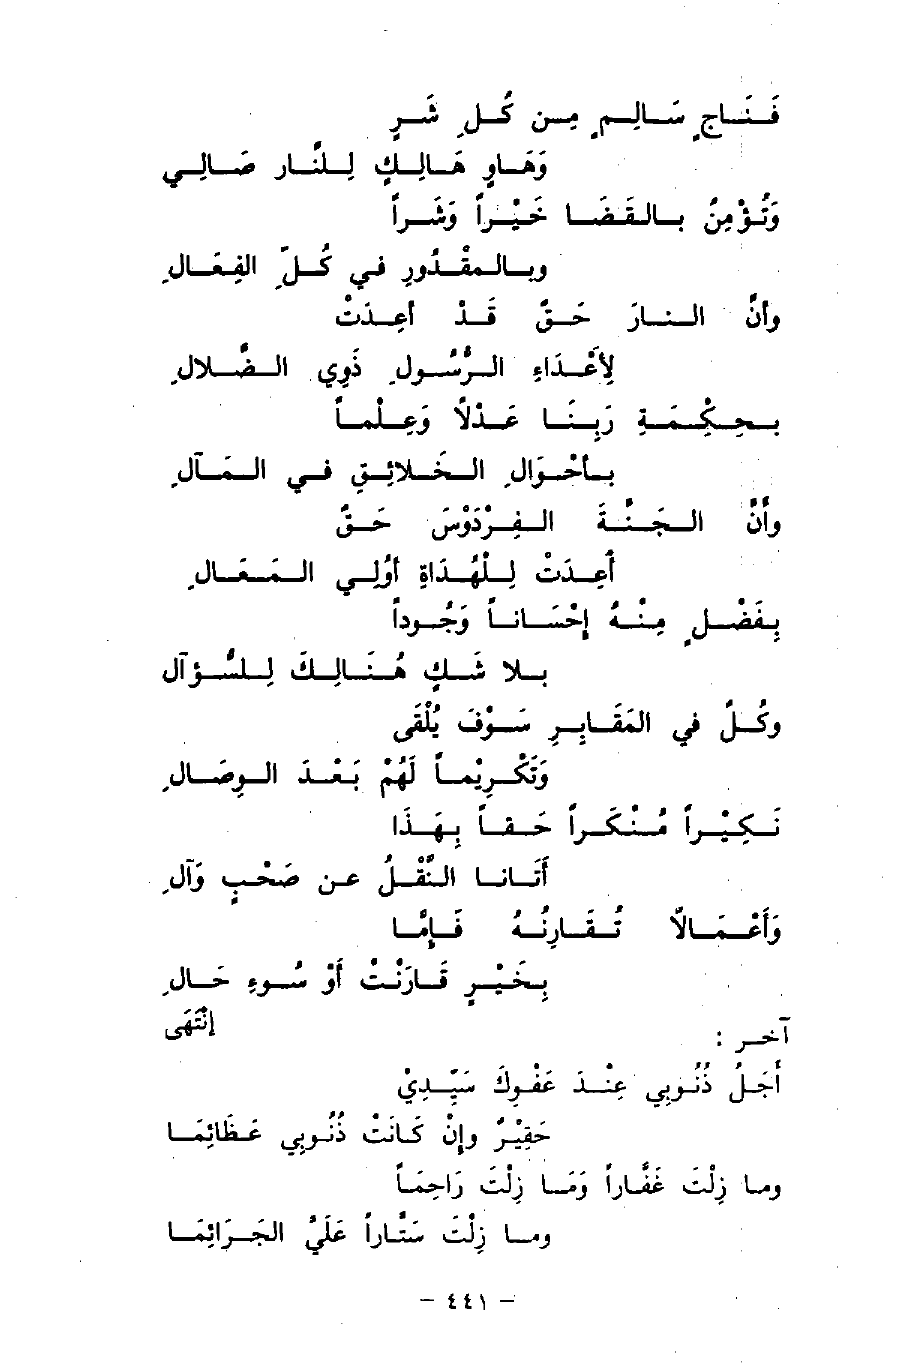 فَنَاجٍ سَالِمٍ مِن كُلِ شَرٍ
وَهَاوٍ هَالِكٍ لِلنَّارِ صَالِي
وَنُؤْمِنُ بِالقَضَا خَيْراً وَشَراً
وبِالمقْدُورِ في كُلِّ الفِعَالِ
وأنَّ النارَ حَقٌ قَدْ أعِدَتْ
لِأَعْدَاءِ الرَّسُولِ ذَوِي الضَّلالِ
بحِكِمَةِ رَبِنَا عَدْلًا وَعِلْماً
بأحْوَالِ الخَلائِقِ في المَآلِ
وأنَّ الجَنَّةَ الفِرْدَوْسَ حَقٌ
أُعِدَتْ لِلْهُدَاةِ أوْلِي المَعَالِ
بِفَضْلٍ مِنْهُ إحْسَاناً وَجُوداً
بلا شَكٍ هُنَالِكَ لِلسُّؤآل
وكُلٌ في المَقَابِرِ سَوْفَ يُلْقَى
وَتَكْرِيْماً لَهُمْ بَعْدَ الوِصَالِ
نَكِيْراً مُنْكَراً حَقاً بِهَذَا
أتَانَا النَّقْلُ عن صَحْبٍ وَآلِ
وَأَعْمَالًا تُقَارِنُهُ فَإِمَّا
بِخَيْرٍ قَارَنْتْ أوْ سُوءِ حَالِ
إنْتَهَى
آخر :
أَجَلُ ذُنُوبِي عِنْدَ عَفْوِكَ سَيِّدِيْ
حَقِيْرٌ وإنْ كَانَتْ ذُنُوبِي عَظَائِمَا
وما زِلْتَ غَفَّاراً وَمَا زِلْتَ رَاحِمَاً
وما زِلْتَ سَتَّاراً عَلَيَّ الجَرَائِمَا
- ٤٤١ -